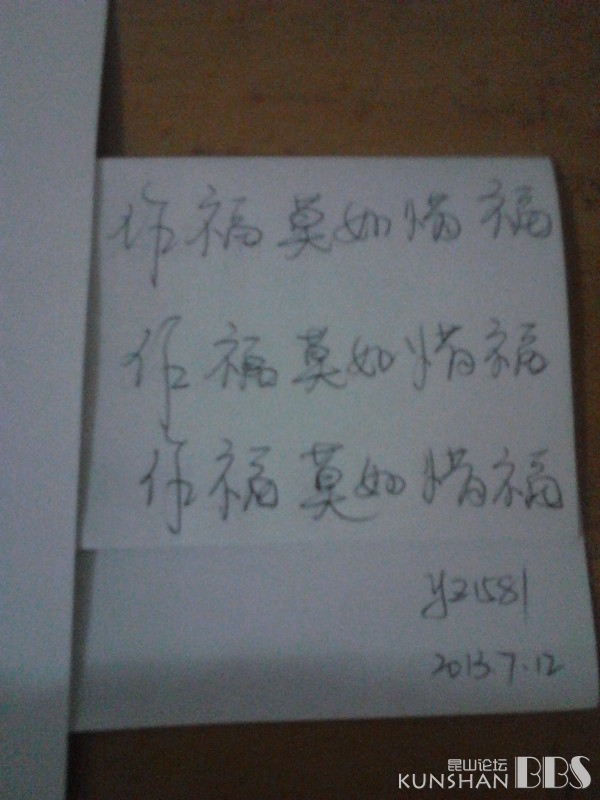 作福莫如惜福
作福莫如惜福
作福莫如惜福
yz1581
2013.7.12
昆山论坛
KUNSHAN BBS